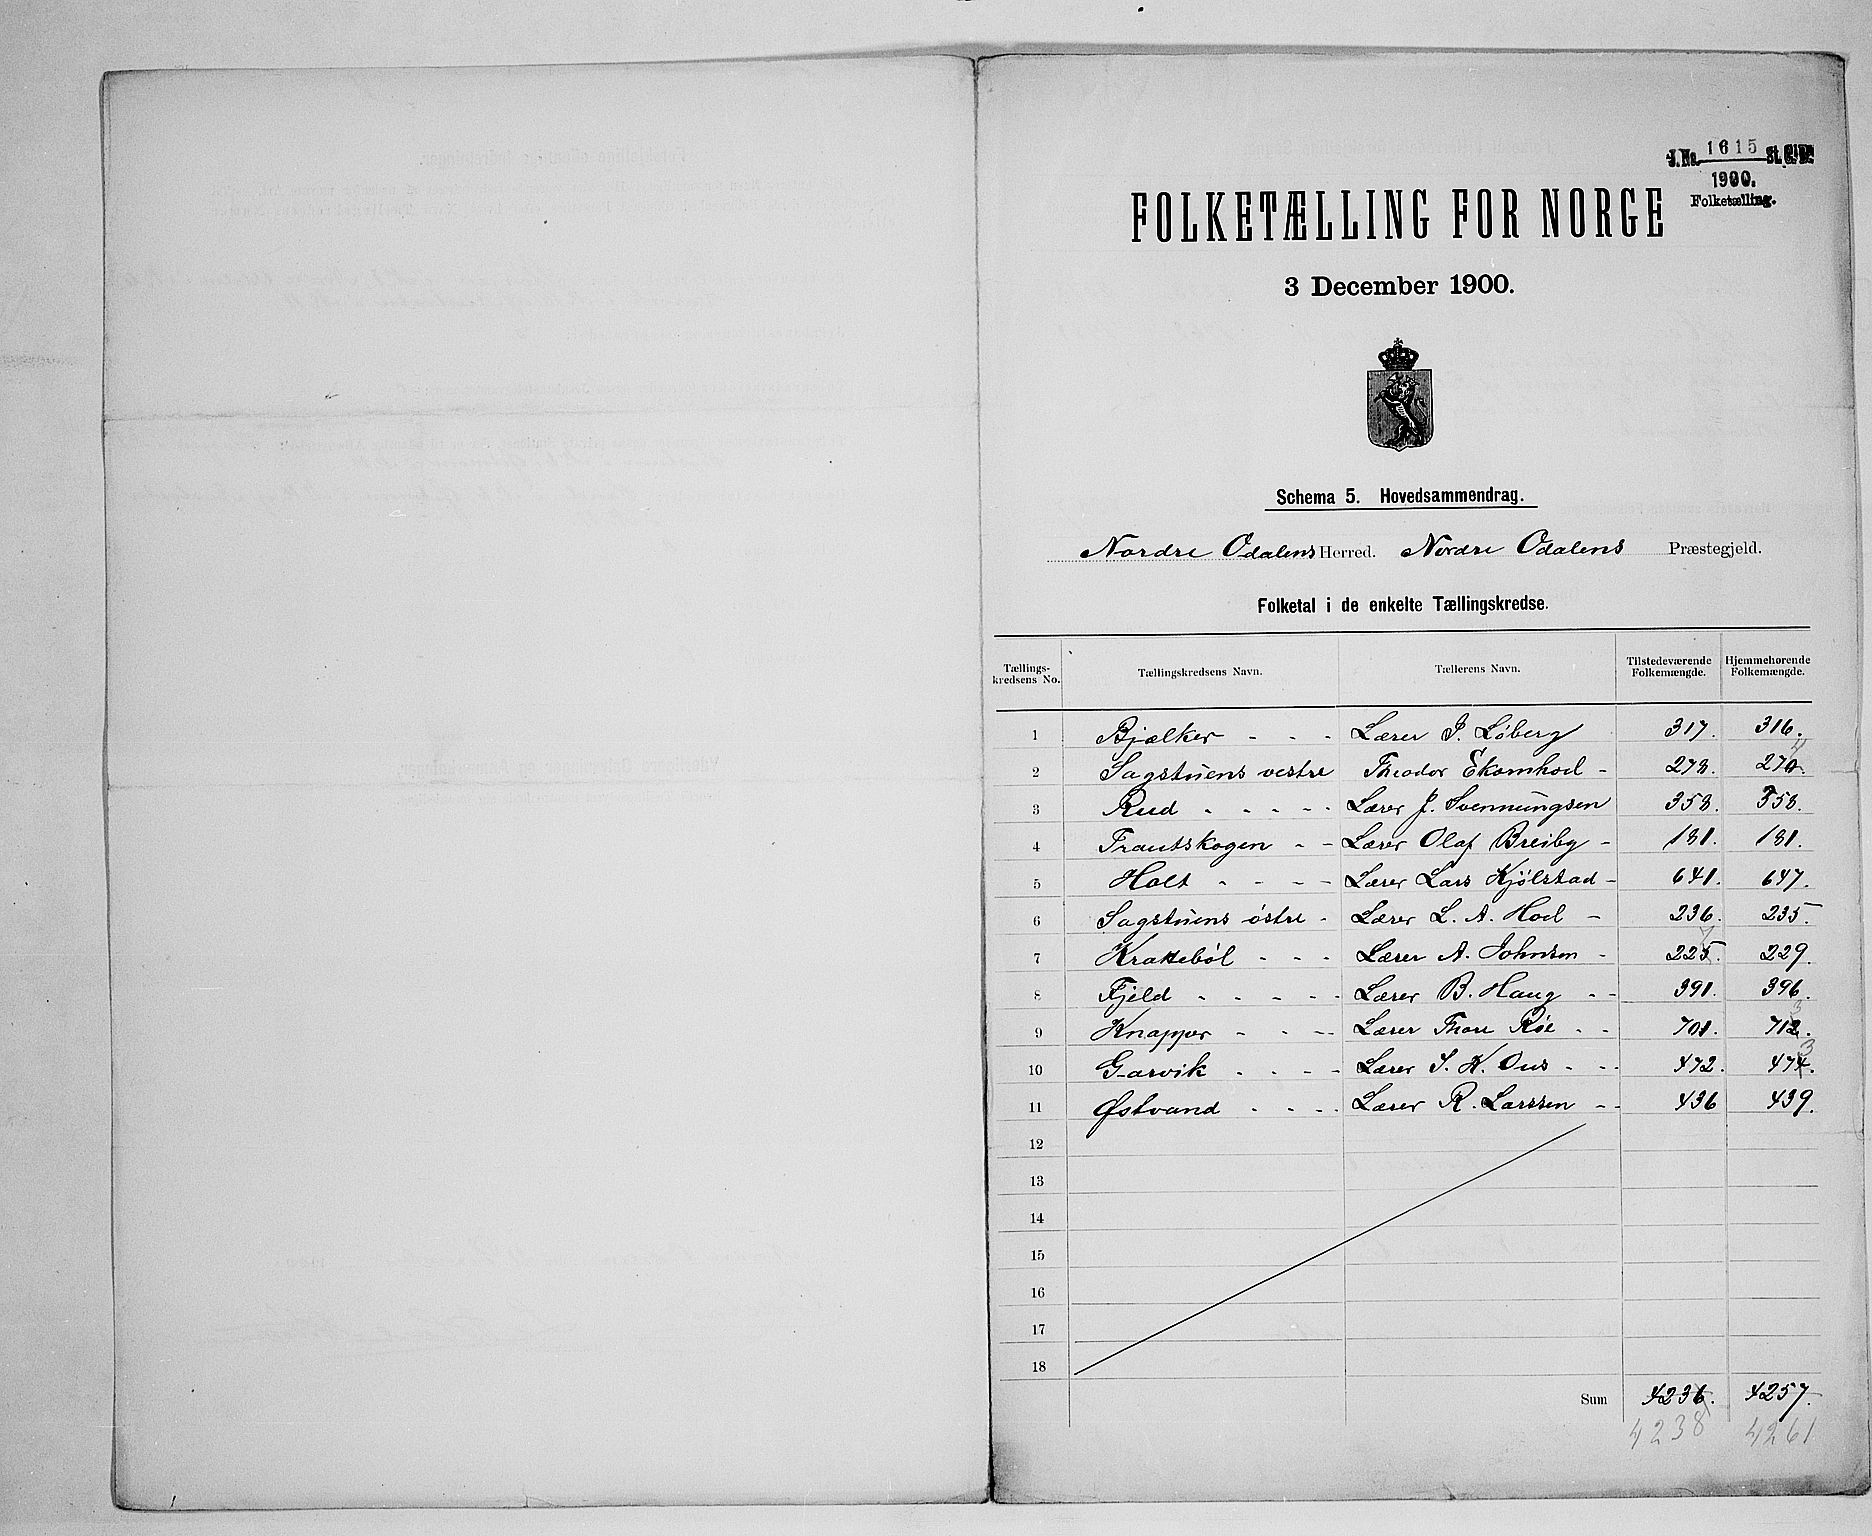 J. No. 1615 St. C. B.
1900.
Folketælling.
FOLKETÆLLING FOR NORGE
3 December 1900.
Schema 5. Hovedsammendrag.
Nordre Odalens Herred. Nordre Odalens Præstegjeld.
Folketal i de enkelte Tællingskredse.
Tællings-kredsens No. Tællingskredsens Navn. Tællerens Navn. Tilstedeværende Folkemængde. Hjemmehørende Folkemængde.
1 Bjælker - - - Lærer J. Löberg 317. 316.
2 Sagstuens vestre Theodor Ekornhol - 278. 270. 4
3 Rud - - - - - Lærer J. Svennungsen 358. 358.
4 Trautskogen - - Lærer Olaf Breiby - 181. 181.
5 Holt - - - - Lærer Lars Kjölstad - 641. 647.
6 Sagstuens östre - Lærer L. A. Hol - 236. 235.
7 Kratteböl - - - Lærer A. Johnsen - 225. 7 229.
8 Fjeld - - - - - Lærer B. Haug - - 391. 396.
9 Knapper - - - Lærer Thore Röe - - 701. 712. 3
10 Garvik - - - - Lærer S. K. Ous - - - 472. 474. 3
11 Østvand - - - - Lærer R. Larssen - - 436 439.
12
13
14
15
16
17
18
Sum 4236. 4257.
4238 4261